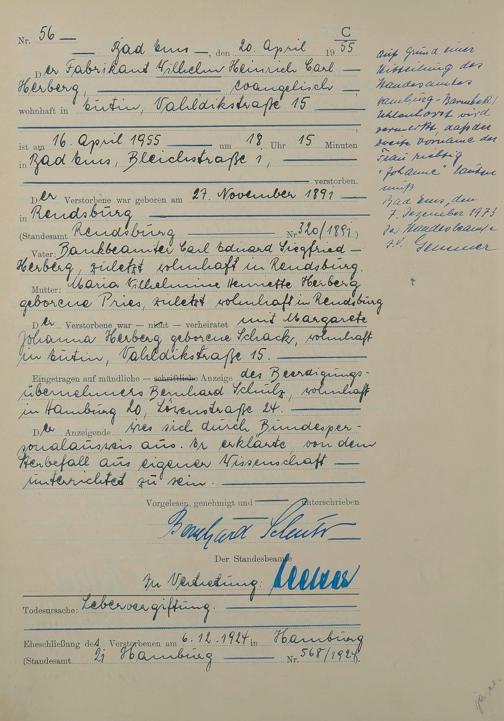 C
Nr. 56
Bad Ems, den 20. April 1955
Der Fabrikant Wilhelm Heinrich Carl
Herberg, evangelisch
wohnhaft in Eutin, Vahldikstraße 15
ist am 16. April 1955 um 18 Uhr 15 Minuten
in Bad Ems, Bleichstraße 1,
verstorben.
Der Verstorbene war geboren am 27. November 1891
in Rendsburg
(Standesamt Rendsburg Nr. 320/1891)
Vater: Bankbeamter Carl Eduard Siegfried
Herberg, zuletzt wohnhaft in Rendsburg.
Mutter: Maria Wilhelmine Henriette Herberg
geborene Pries, zuletzt wohnhaft in Rendsburg
Der Verstorbene war – nicht – verheiratet mit Margarete
Johanna Herberg geborene Schack, wohnhaft
in Eutin, Vahldikstraße 15.
Eingetragen auf mündliche – schriftliche – Anzeige des Beerdigungs-
übernehmers Bernhard Schulz, wohnhaft
in Hamburg 20, 24.
Der Anzeigende wies sich durch Bundesper-
sonalausweis aus. Er erklärte, von dem
Sterbefall aus eigener Wissenschaft
unterrichtet zu sein.
Vorgelesen, genehmigt und unterschrieben
Bernhard Schulz
Der Standesbeamte
In Vertretung:
Todesursache: Lebervergiftung.
Eheschließung des Verstorbenen am 6.12.1924 in Hamburg
(Standesamt 2 Hamburg Nr. 568/1924).
auf Grund einer
Mitteilung des
Standesamtes
Hamburg-Barmbek/
Uhlenhorst wird
vermerkt, daß der
zweite Vorname der
Frau richtig
"Johanne" lauten
muß
Bad Ems, den
7. Dezember 1973
Der Standesbeamte